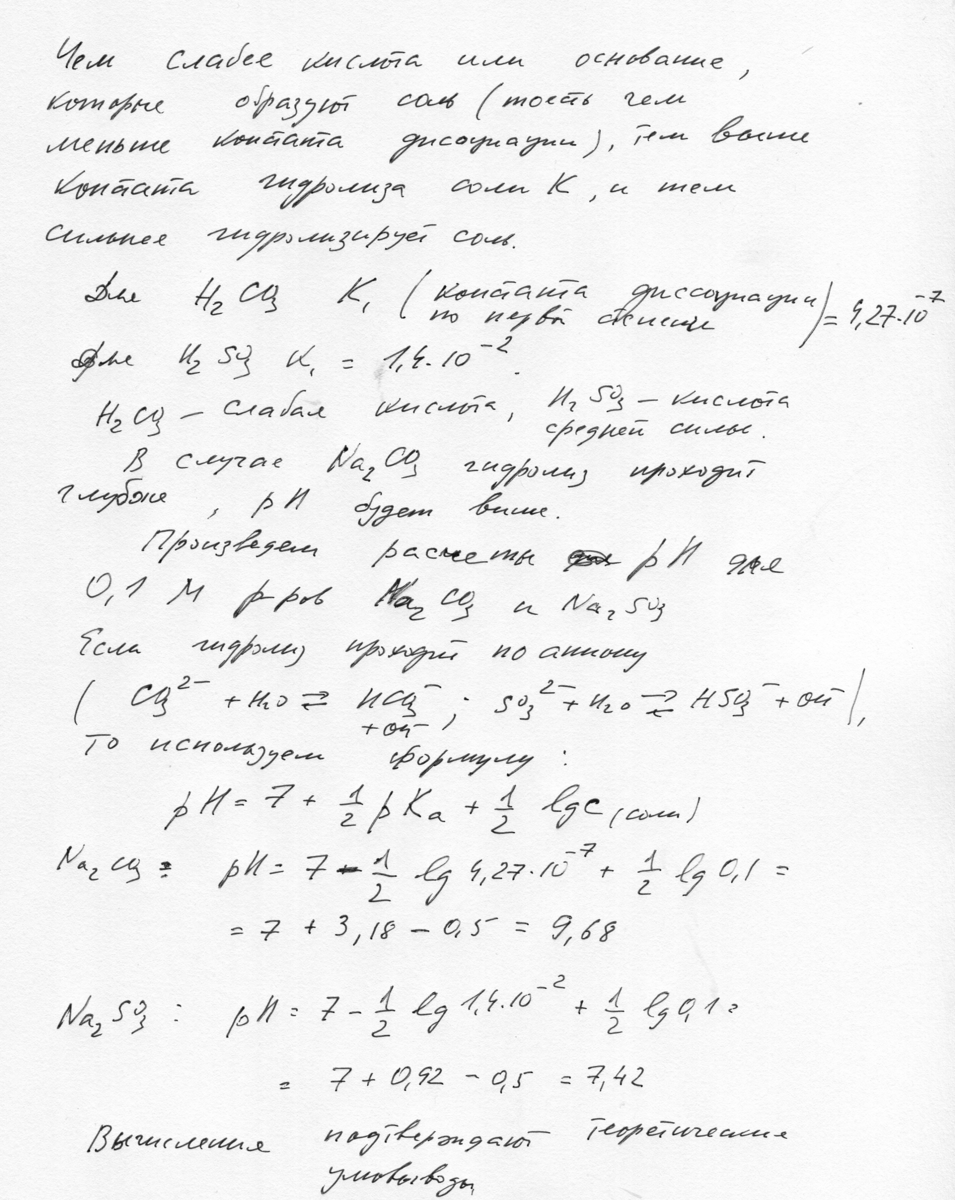 Чем слабее кислота или основание,
которые образуют соль (тость чем
меньше константа диссоциации), тем выше
константа гидролиза соли K, и тем
сильнее гидролизирует соль.
Для H₂CO₃ K₁ (константа диссоциации по первой степени) = 4,27·10⁻⁷
Для H₂SO₃ K₁ = 1,4·10⁻².
H₂CO₃ – слабая кислота, H₂SO₃ – кислота средней силы.
В случае Na₂CO₃ гидролиз проходит
глубже, pH будет выше.
Произведем расчеты pH для
0,1 M р-ров Na₂CO₃ и Na₂SO₃
Если гидролиз проходит по аниону
(CO₃²⁻ + H₂O ⇄ HCO₃⁻ + OH⁻; SO₃²⁻ + H₂O ⇄ HSO₃⁻ + OH⁻),
то используем формулу:
pH = 7 + 1/2 pKa + 1/2 lgC (соли)
Na₂CO₃: pH = 7 - 1/2 lg 4,27·10⁻⁷ + 1/2 lg 0,1 =
= 7 + 3,18 - 0,5 = 9,68
Na₂SO₃: pH = 7 - 1/2 lg 1,4·10⁻² + 1/2 lg 0,1 =
= 7 + 0,92 - 0,5 = 7,42
Вычисления подтверждают теоретические
умовыводы